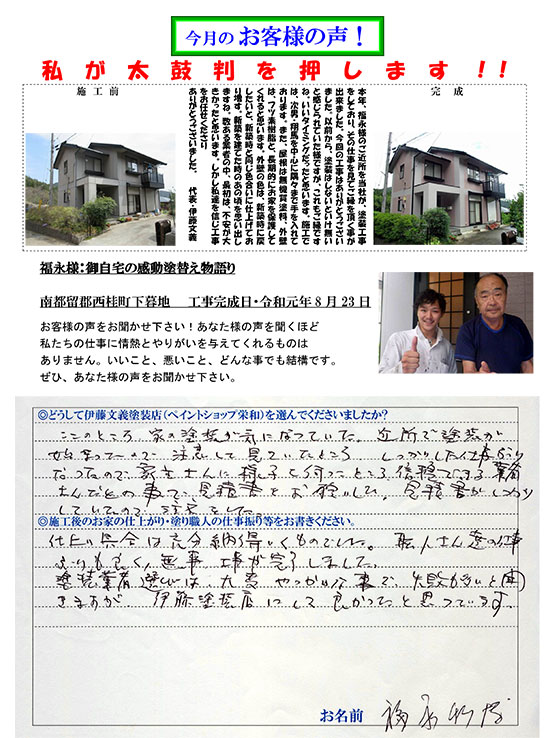 今月の お客様の声！
私が太鼓判を押します！！
施工前
完成
本年、福永様のご近所を当社が、塗装工事
をしており、その仕事を見てご縁を頂く事が
出来ました。今回の工事はありがとうござい
ました。以前から、塗装はしないといけ無い
と感じられていた様ですが、これもご縁です
ね。いいタイミングだったと思います。施工で
は、次男・翔馬を中心に隅々まで手を入れて
おります。また、屋根は無機質塗料、外壁
は、フッ素樹脂と、長期的にお家を保護して
くれると思います。外壁の色は、新築時に戻
したいと、新築時と同じ色合いに仕上げてお
ります。新築を建てた時のあの頃を思い出し
ますね。数ある業者の中、最初は、不安が大
きかったと思います。しかし私達を信じ工事
をお任せくださり
ありがとうございました。 代表・伊藤文義
福永様：御自宅の感動塗替え物語り
南都留郡西桂町下暮地 工事完成日・令和元年8月23日
お客様の声をお聞かせ下さい！あなた様の声を聞くほど
私たちの仕事に情熱とやりがいを与えてくれるものは
ありません。いいこと、悪いこと、どんな事でも結構です。
ぜひ、あなた様の声をお聞かせ下さい。
◎どうして伊藤文義塗装店（ペイントショップ栄和）を選んでくださいましたか？
ここのところ、家の塗装が気になっていた。近所で塗装が
始まったので注意して見ていたところ しっかりした仕事ぶり
だったので、家主さんに様子を伺ったところ信頼できる業者
さんだとの事で、見積書をお願いした。見積書がしっかり
していたので 注文した
◎施工後のお家の仕上がり・塗り職人の仕事振り等をお書きください。
仕上り具合は充分納得いくものでした。職人さん達の仕事
ぶりも良く、無事工事が完了しました。
塗装業者選びは 大変やっかいな事で、失敗が多いと聞
きますが 伊藤塗装店にして良かったと思っています。
お名前 福永